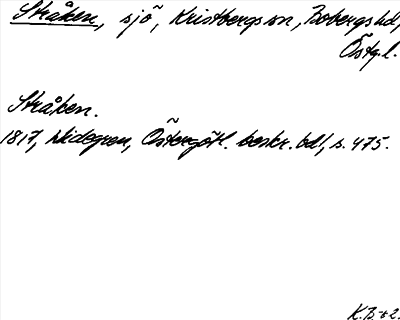 Stråken, sjö, Kristbergs sn, Bobergs hd,
Östg.l.
Stråken.
1817, Widegren, Östergötl. beskr. bd 1, s. 475.
K.B-s 2.